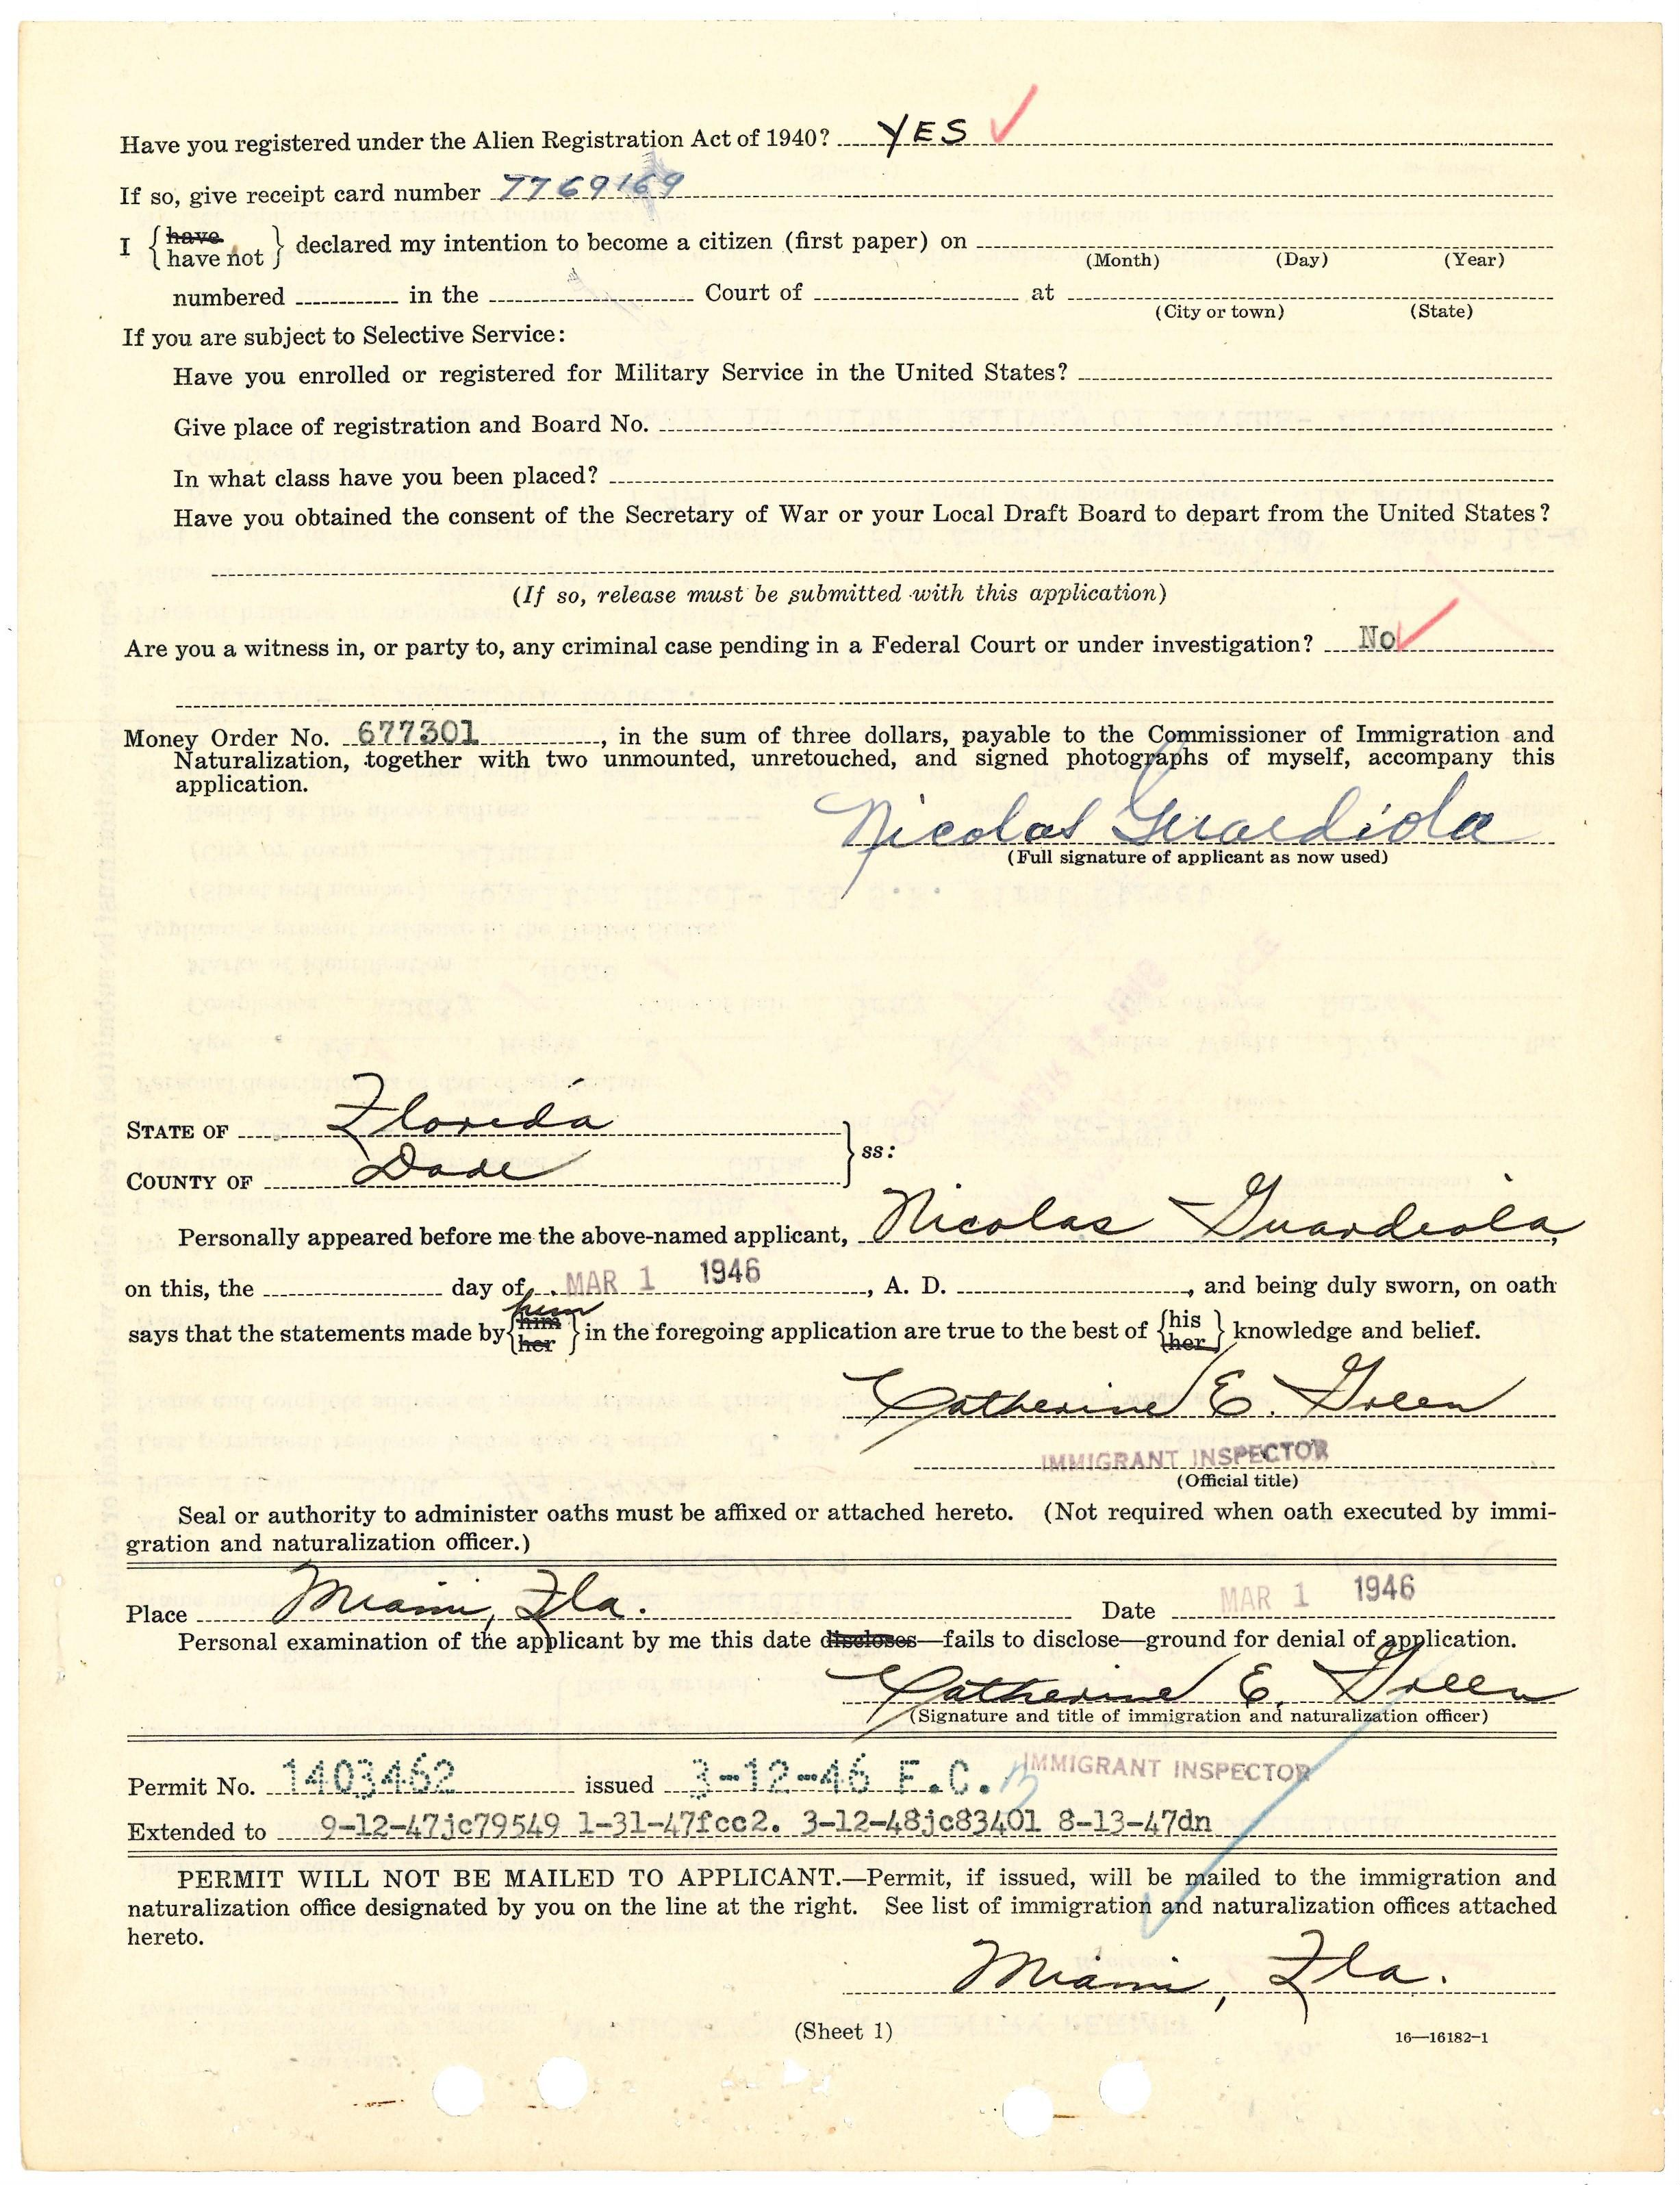 Have you registered under the Alien Registration Act of 1940? YES
If so, give receipt card number 7769169
I {have / have not} declared my intention to become a citizen (first paper) on
(Month) (Day) (Year)
numbered in the Court of at
(City or town) (State)
If you are subject to Selective Service:
Have you enrolled or registered for Military Service in the United States?
Give place of registration and Board No.
In what class have you been placed?
Have you obtained the consent of the Secretary of War or your Local Draft Board to depart from the United States?
(If so, release must be submitted with this application)
Are you a witness in, or party to, any criminal case pending in a Federal Court or under investigation? No
Money Order No. 677301, in the sum of three dollars, payable to the Commissioner of Immigration and
Naturalization, together with two unmounted, unretouched, and signed photographs of myself, accompany this
application.
Nicolas Guardiola
(Full signature of applicant as now used)
STATE OF Florida
COUNTY OF Dade } ss:
Personally appeared before me the above-named applicant, Nicolas Guardiola,
on this, the day of MAR 1 1946, A. D. , and being duly sworn, on oath
him
says that the statements made by {him / her} in the foregoing application are true to the best of {his / her} knowledge and belief.
Catherine E. Green
IMMIGRANT INSPECTOR
(Official title)
Seal or authority to administer oaths must be affixed or attached hereto. (Not required when oath executed by immi-
gration and naturalization officer.)
Place Miami, Fla. Date MAR 1 1946
Personal examination of the applicant by me this date discloses—fails to disclose—ground for denial of application.
Catherine E. Green
(Signature and title of immigration and naturalization officer)
IMMIGRANT INSPECTOR
Permit No. 1403462 issued 3-12-46 F.C.
Extended to 9-12-47jc79549 1-31-47fcc2. 3-12-48jc83401 8-13-47dn
PERMIT WILL NOT BE MAILED TO APPLICANT.—Permit, if issued, will be mailed to the immigration and
naturalization office designated by you on the line at the right. See list of immigration and naturalization offices attached
hereto.
Miami, Fla.
(Sheet 1)
16—16182-1